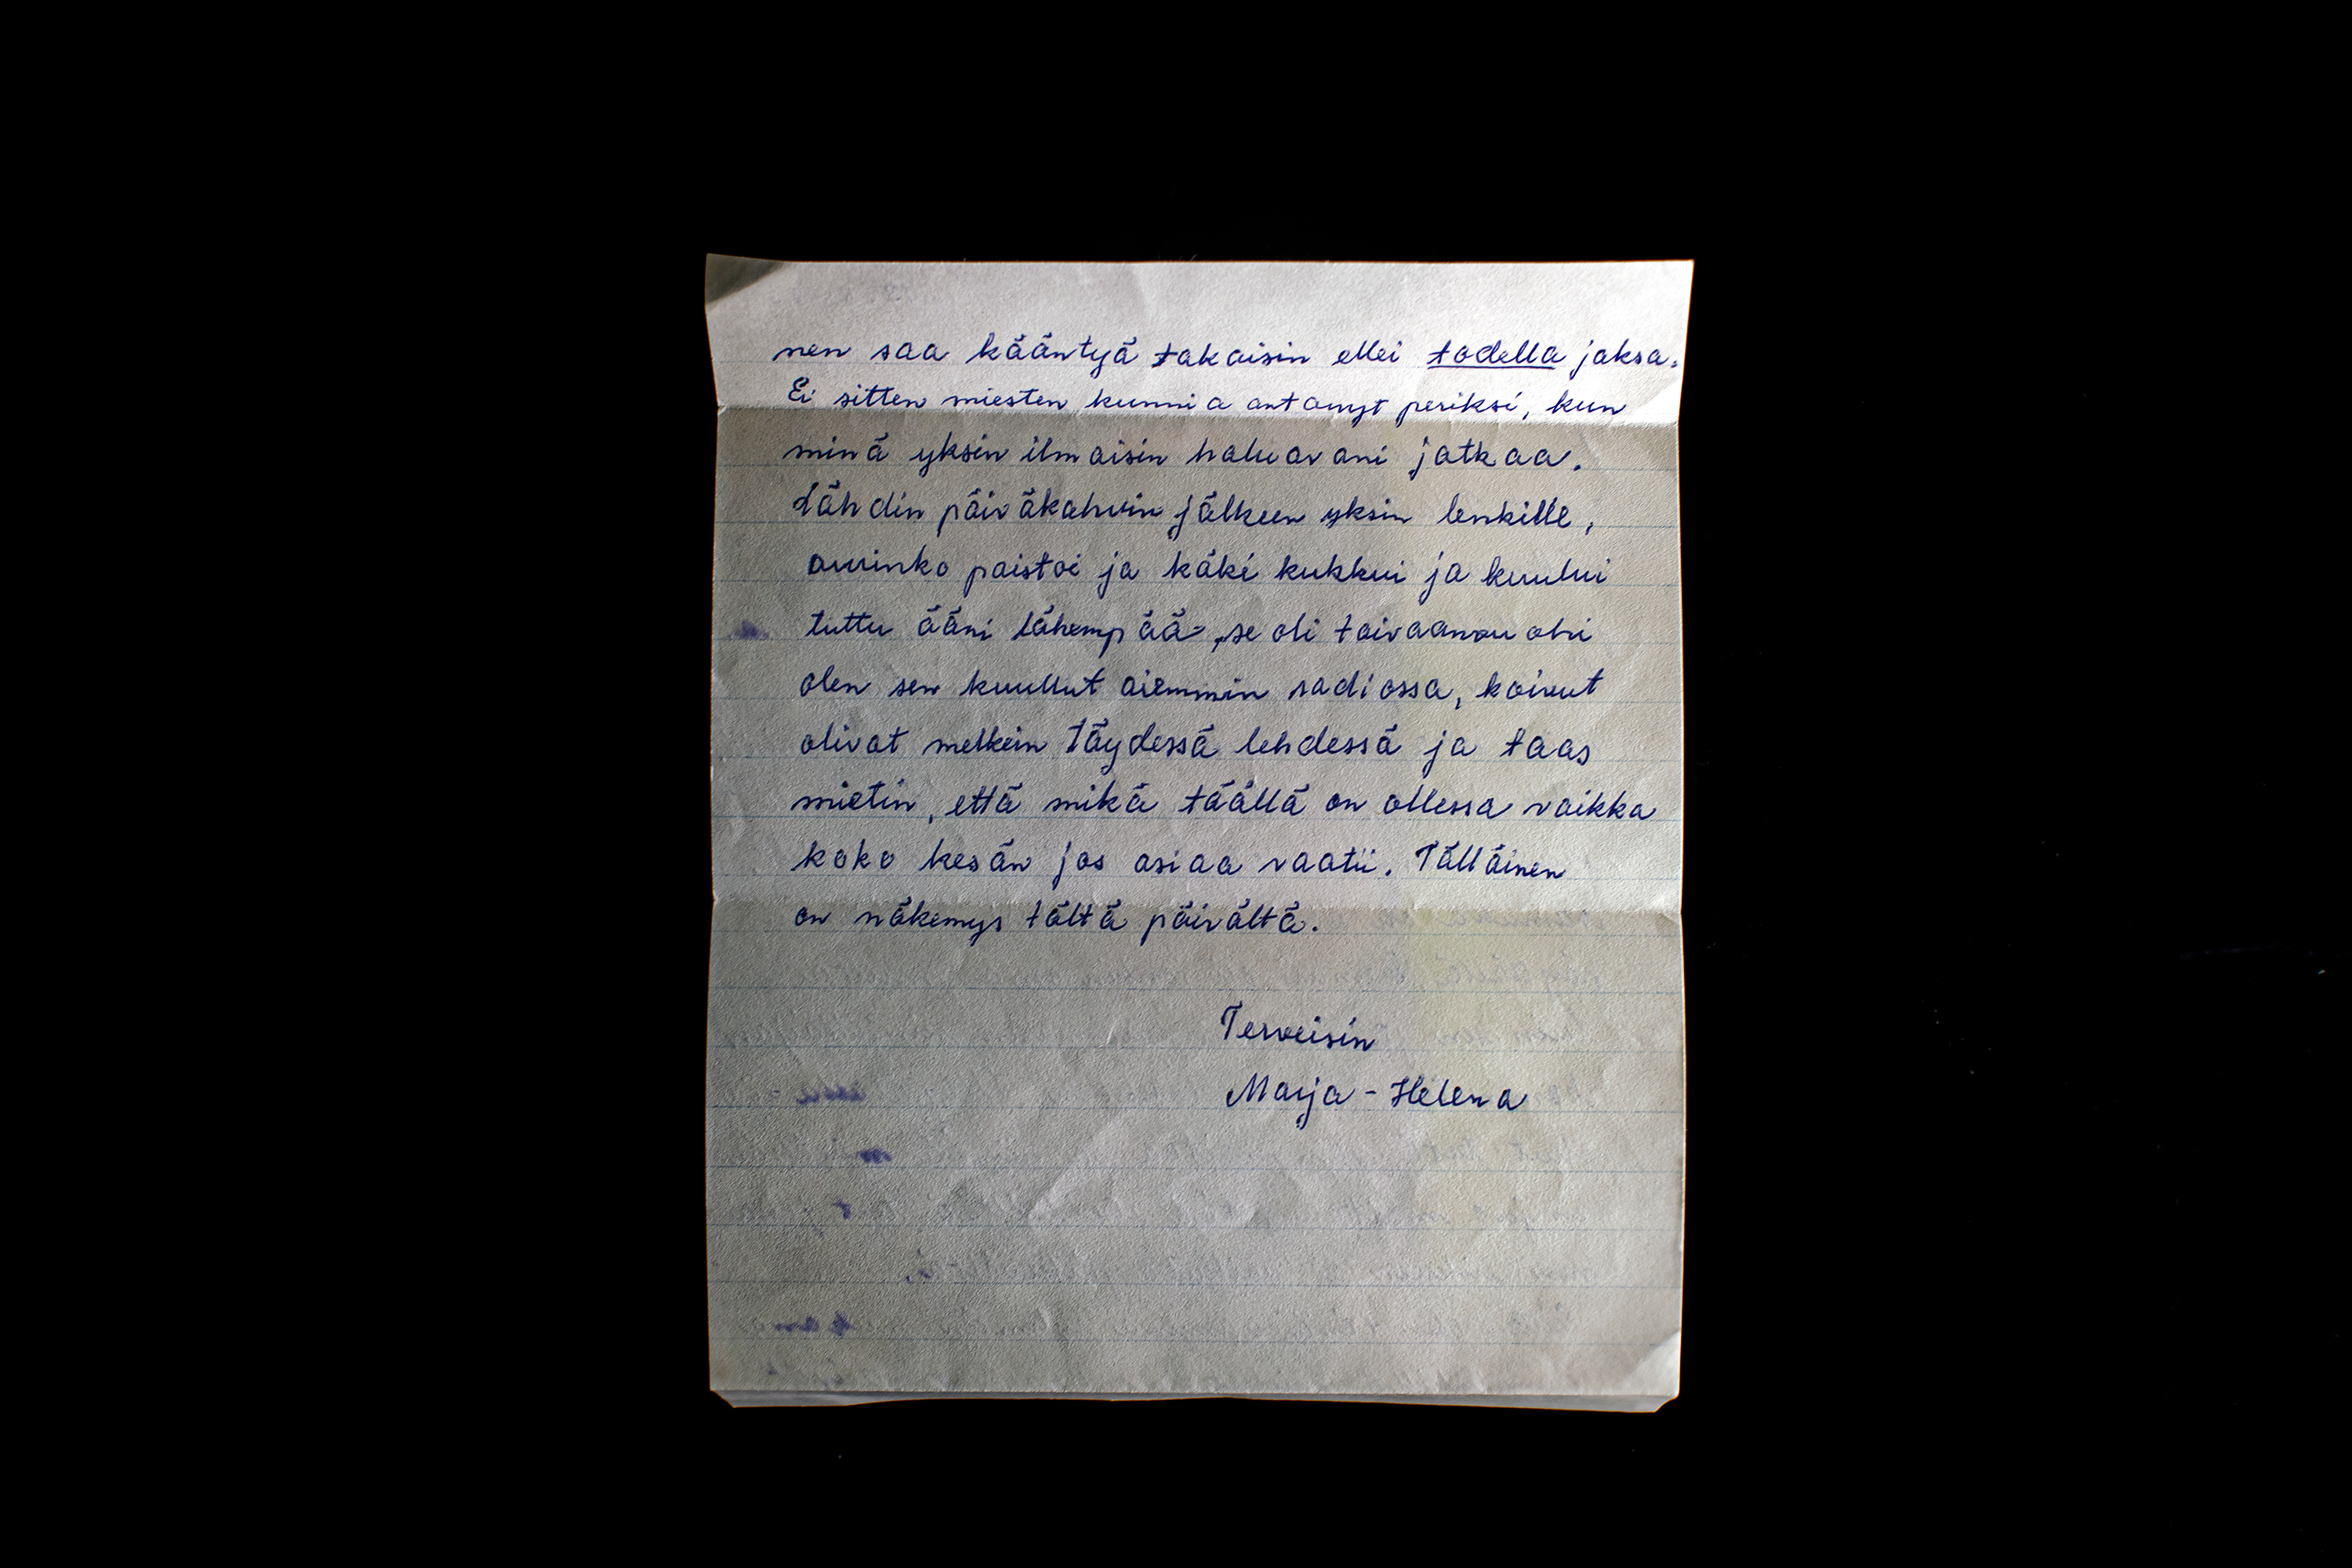 nen saa kääntyä takaisin ellei todella jaksa.
Ei sitten miesten kunnia antanut periksi, kun
minä yksin ilmaisin haluavani jatkaa.
Lähdin päiväkahvin jälkeen yksin lenkille,
aurinko paistoi ja käki kukkui ja kuului
tuttu ääni lähempää, se oli taivaanvuohi
olen sen kuullut aiemmin radiossa, koivut
olivat melkein täydessä lehdessä ja taas
mietin, että mikä täällä on ollessa vaikka
koko kesän jos asiaa vaatii. Tälläinen
on näkemys tältä päivältä.
Terveisin
Marja-Helena